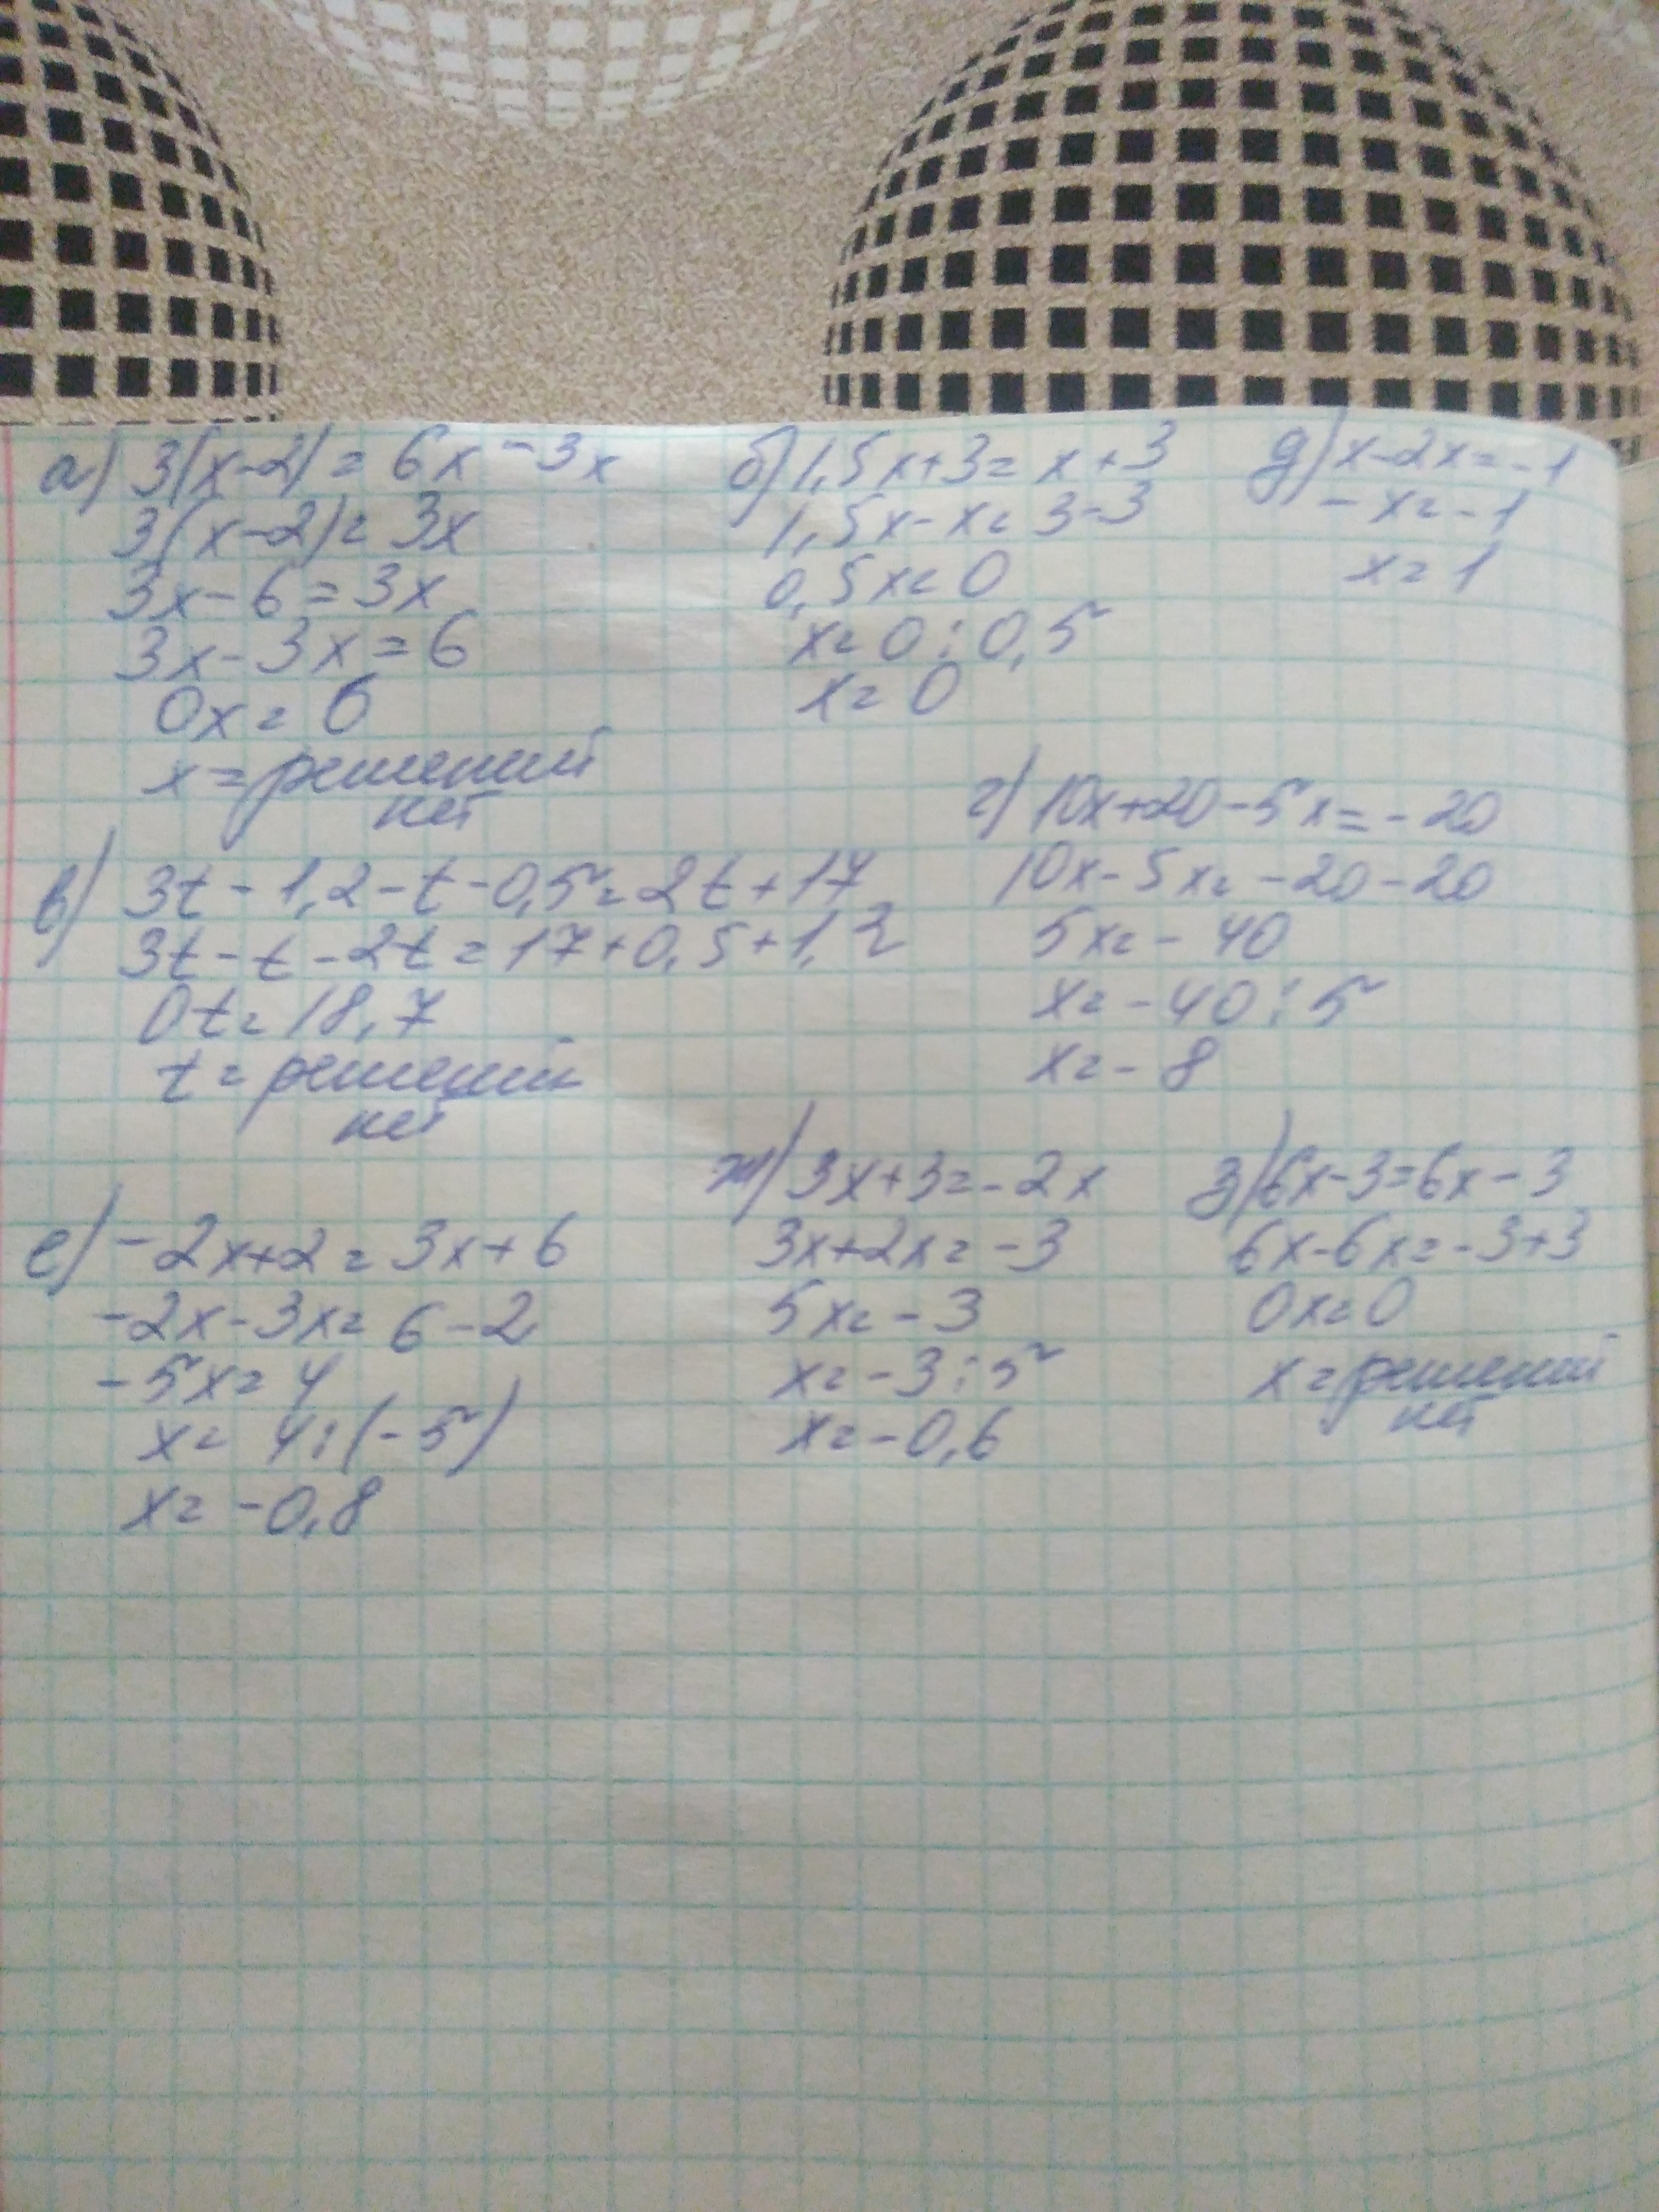 а) 3(x-2)=6x-3x
3(x-2)=3x
3x-6=3x
3x-3x=6
0x=6
x=решений
нет
б) 1,5x+3=x+3
1,5x-x=3-3
0,5x=0
x=0:0,5
x=0
д) x-2x=-1
-x=-1
x=1
в) 3t-1,2-t-0,5=2t+17
3t-t-2t=17+0,5+1,2
0t=18,7
t=решений
нет
г) 10x+20-5x=-20
10x-5x=-20-20
5x=-40
x=-40:5
x=-8
е) -2x+2=3x+6
-2x-3x=6-2
-5x=4
x=4:(-5)
x=-0,8
ж) 3x+3=-2x
3x+2x=-3
5x=-3
x=-3:5
x=-0,6
з) 6x-3=6x-3
6x-6x=-3+3
0x=0
x=решений
нет